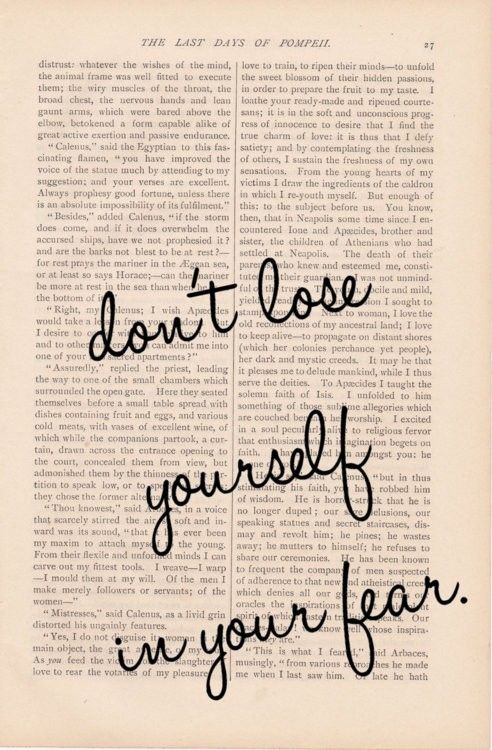 THE LAST DAYS OF POMPEII.
27
distrust: whatever the wishes of the mind,
the animal frame was well fitted to execute
them; the wiry muscles of the throat, the
broad chest, the nervous hands and lean
gaunt arms, which were bared above the
elbow, betokened a form capable alike of
great active exertion and passive endurance.
"Calenus," said the Egyptian to this fas-
cinating flamen, "you have improved the
voice of the statue much by attending to my
suggestion; and your verses are excellent.
Always prophesy good fortune, unless there
is an absolute impossibility of its fulfilment."
"Besides," added Calenus, "if the storm
does come, and if it does overwhelm the
accursed ships, have we not prophesied it?
and are the barks not blest to be at rest?—
for rest prays the mariner in the Ægean sea,
or at least so says Horace;—can the mariner
be more at rest in the sea than when he is
the bottom of
"Right, my Calenus; I wish
would take a
I desire to
and to other
one of your sacred apartments?"
"Assuredly," replied the priest, leading
the way to one of the small chambers which
surrounded the open gate. Here they seated
themselves before a small table spread with
dishes containing fruit and eggs, and various
cold meats, with vases of excellent wine, of
which while the companions partook, a cur-
tain, drawn across the entrance opening to
the court, concealed them from view, but
admonished them by the thinness of the
tition to speak low, or to
they chose the former
"Thou knowest," said in a voice
that scarcely stirred the air, soft and in-
ward was its sound, "that ever been
my maxim to attach myself the young.
From their flexile and unformed minds I can
carve out my fittest tools. I weave—I warp
—I mould them at my will. Of the men I
make merely followers or servants; of the
women—"
"Mistresses," said Calenus, as a livid grin
distorted his ungainly features.
"Yes, I do not disguise it,
main object, the great
As you feed the slaughter
love to rear the votaries of my pleasure.
love to train, to ripen their minds—to unfold
the sweet blossom of their hidden passions,
in order to prepare the fruit to my taste. I
loathe your ready-made and ripened courte-
sans; it is in the soft and unconscious prog-
ress of innocence to desire that I find the
true charm of love: it is thus that I defy
satiety; and by contemplating the freshness
of others, I sustain the freshness of my own
sensations. From the young hearts of my
victims I draw the ingredients of the caldron
in which I re-youth myself. But enough of
this; to the subject before us. You know,
then, that in Neapolis some time since I en-
countered Ione and Apæcides, brother and
sister, the children of Athenians who had
settled at Neapolis. The death of their
parents, who knew and esteemed me, consti-
their guardian. I was not unmind-
ful of trust. The docile and mild,
yielded I sought to
stamp Next to woman, I love the
old recollections of my ancestral land; I love
to keep alive—to propagate on distant shores
(which her colonies perchance yet people),
her dark and mystic creeds. It may be that
it pleases me to delude mankind, while I thus
serve the deities. To Apæcides I taught the
solemn faith of Isis. I unfolded to him
something of those sublime allegories which
are couched beneath her worship. I excited
in a soul peculiarly to religious fervor
that enthusiasm imagination begets on
faith. I have amongst you: he
said Calenus, "but in thus
stimulating his faith, you have robbed him
of wisdom. He is horror-struck that he is
no longer duped; our delusions, our
speaking statues and secret staircases, dis-
may and revolt him; he pines; he wastes
away; he mutters to himself; he refuses to
share our ceremonies. He has been known
to frequent the company of men suspected
of adherence to that new and atheistical creed
which denies all our gods,
oracles the inspirations
speaks. Our
know those inspira-
"This is what I feared," said Arbaces,
musingly, "from various reproaches he made
me when I last saw him. Of late he hath
don't lose
yourself
in your fear.